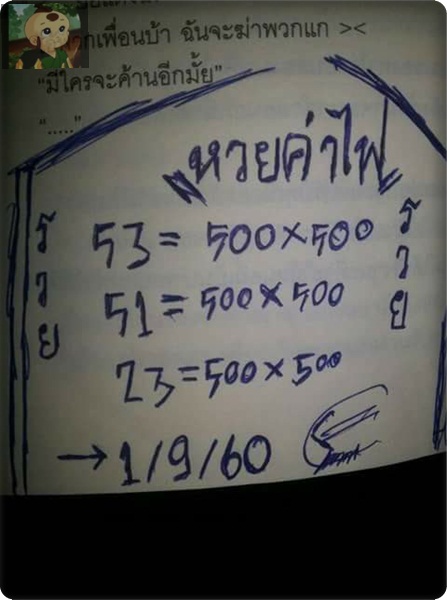 กเพื่อนบ้า ฉันจะฆ่าพวกแก ><
“มีใครจะค้านอีกมั้ย”
“.....”
หวยค่าไฟ
รวย
รวย
53 = 500×500
51 = 500×500
23 = 500×500
→ 1/9/60